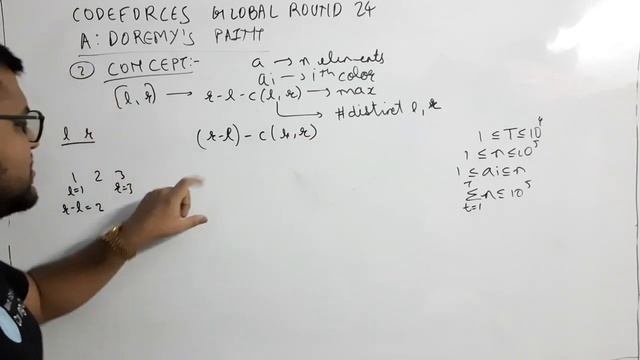 CODEFORCES GLOBAL ROUND 24
A: DOREMY'S PAITH
② CONCEPT:-
a → n elements
ai → ith color
[l, r] → r-l-c(l,r) → max
#distinct l, r
l r
(r-l) - c(l,r)
1 2 3
l=1 r=3
r-l=2
1 ≤ T ≤ 10^4
1 ≤ n ≤ 10^5
1 ≤ ai ≤ n
T
∑ n ≤ 10^5
t=1